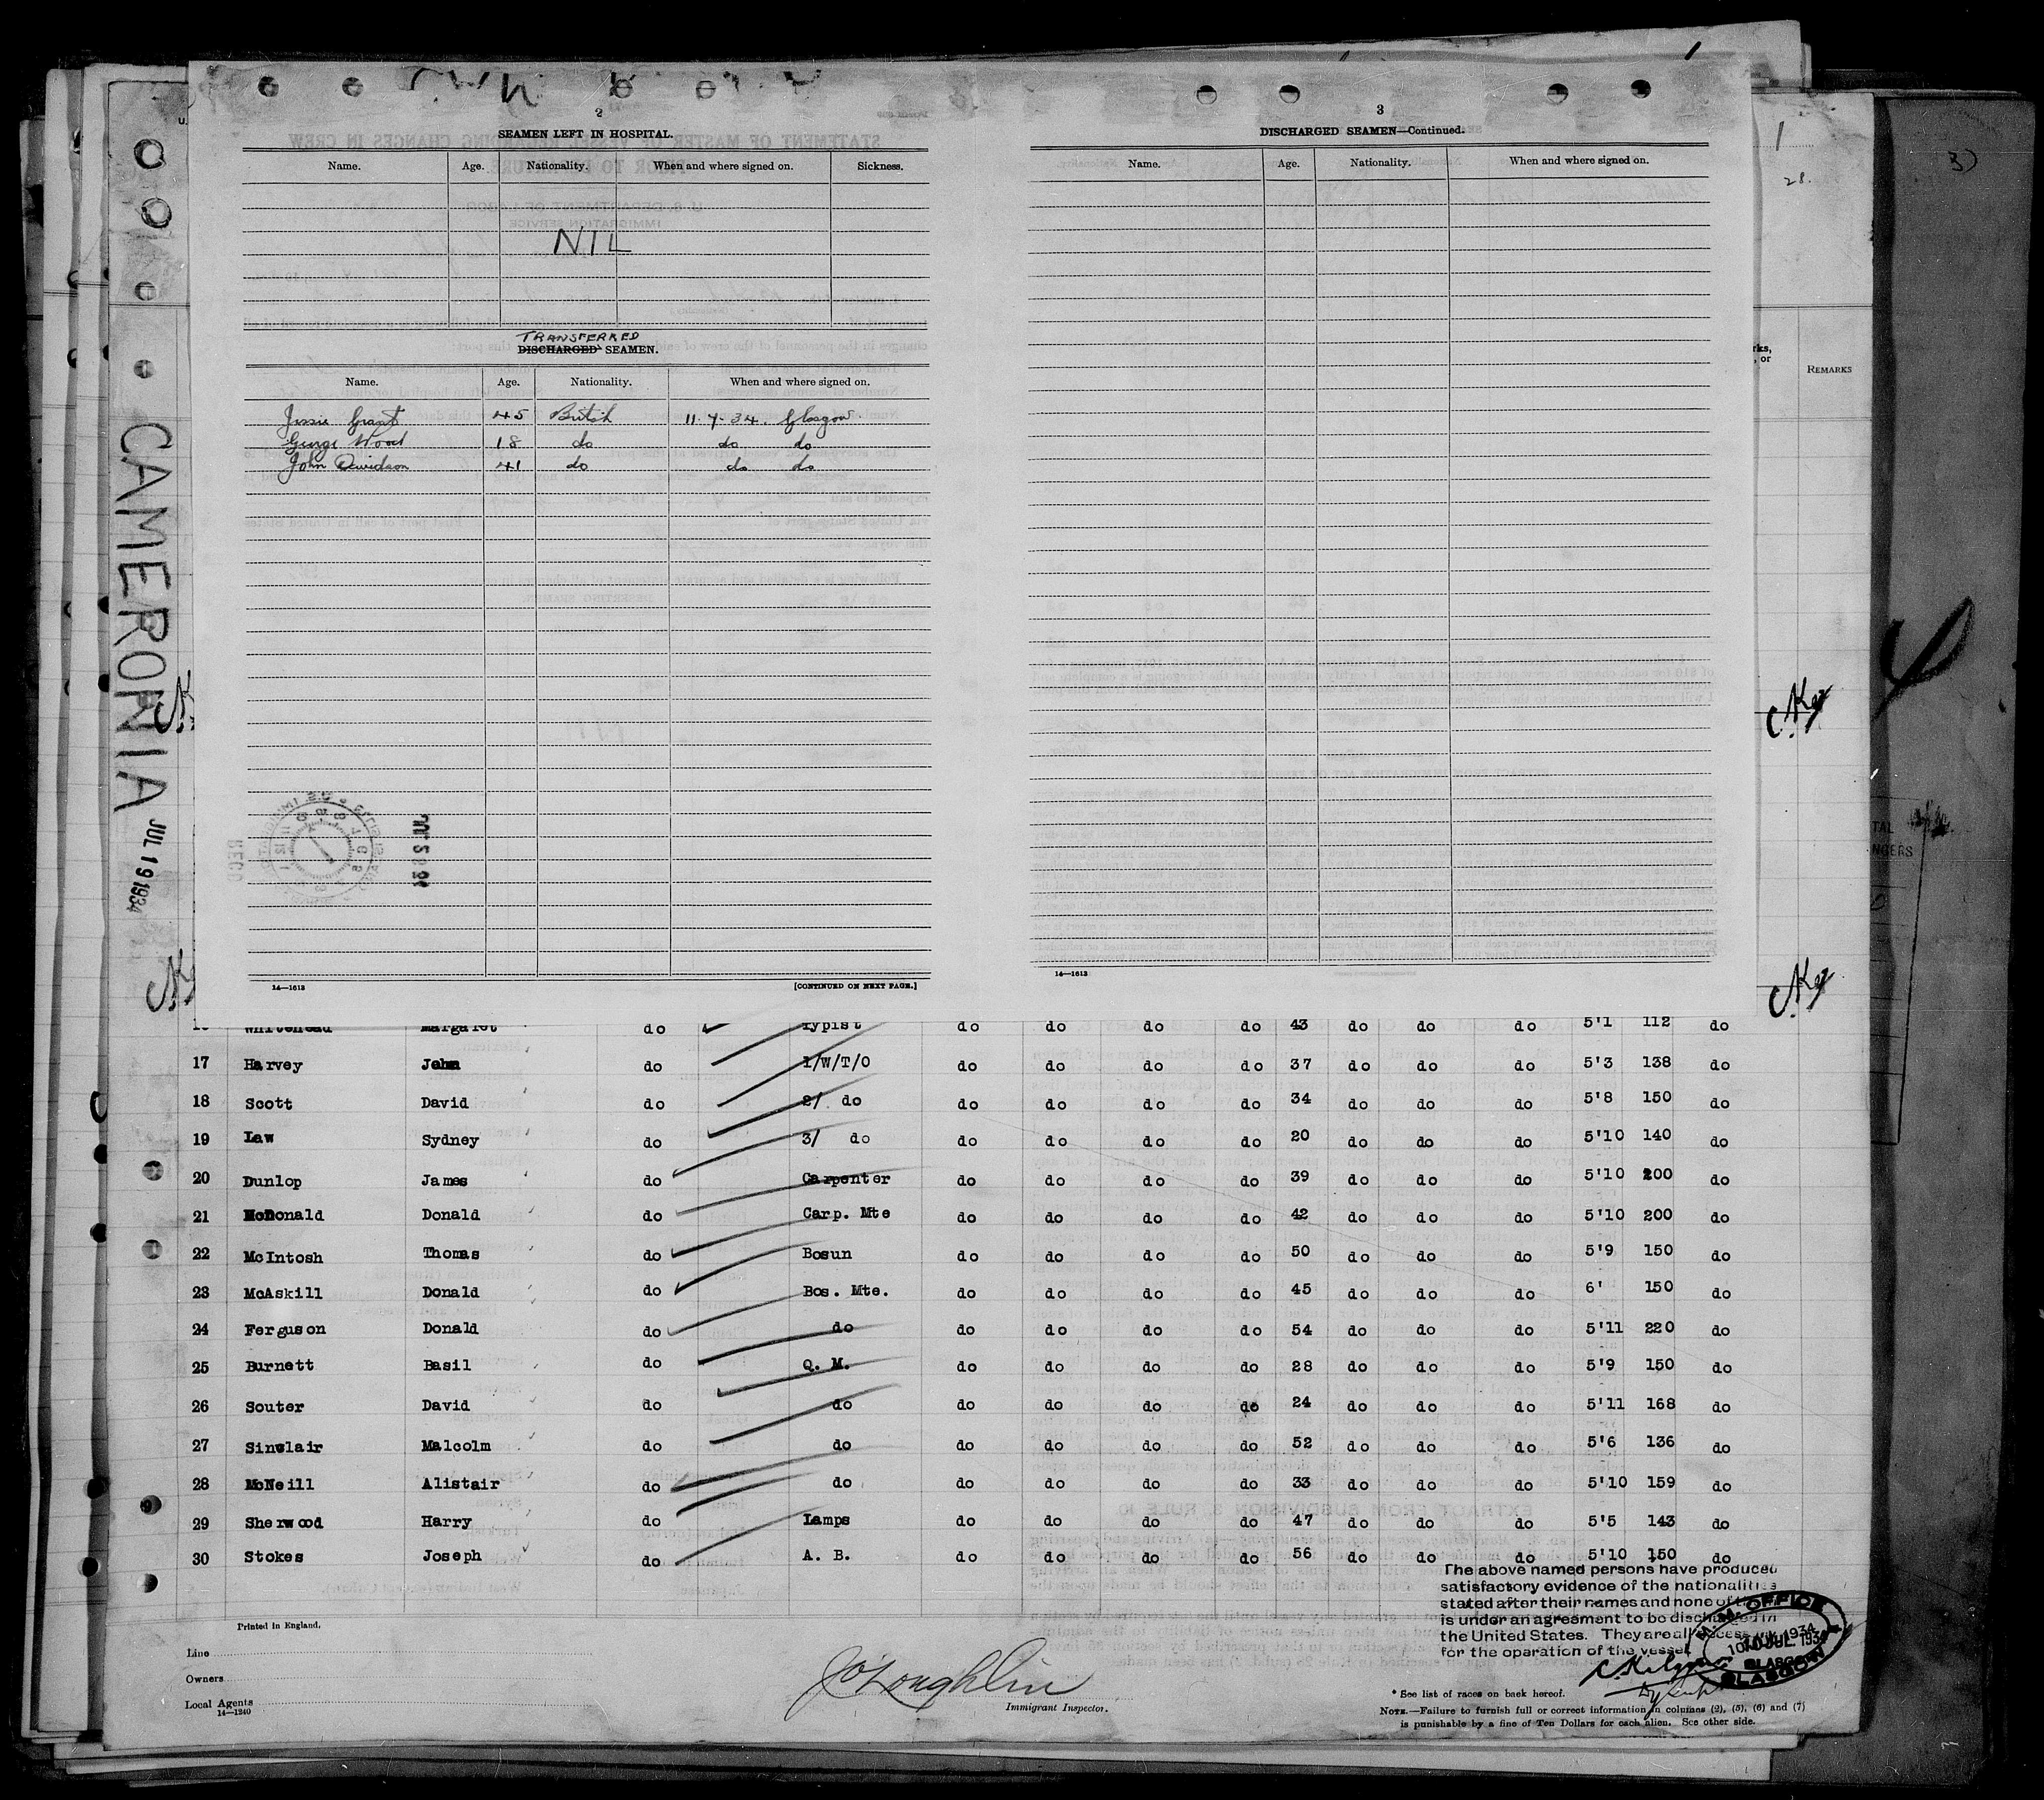 2
SEAMEN LEFT IN HOSPITAL.
Name. Age. Nationality. When and where signed on. Sickness.
NIL
TRANSFERRED
DISCHARGED SEAMEN.
Name. Age. Nationality. When and where signed on.
Jessie Grant 45 British 11-7-34. Glasgow.
George Wood 18 do do do
John Davidson 41 do do do
14—1613 [CONTINUED ON NEXT PAGE.]
3
DISCHARGED SEAMEN—Continued.
Name. Age. Nationality. When and where signed on.
14—1613
1
28.
3)
rks,
, or
REMARKS
TAL
NGERS
CAMERONIA JUL 19 1934
Whitehead Margaret do Typist do do do do 43 do do do 5'1 112 do
17 Harvey John do 1/W/T/O do do do do 37 do do do 5'3 138 do
18 Scott David do 2/ do do do do do 34 do do do 5'8 150 do
19 Law Sydney do 3/ do do do do do 20 do do do 5'10 140 do
20 Dunlop James do Carpenter do do do do 39 do do do 5'10 200 do
21 McDonald Donald do Carp. Mte do do do do 42 do do do 5'10 200 do
22 McIntosh Thomas do Bosun do do do do 50 do do do 5'9 150 do
23 McAskill Donald do Bos. Mte. do do do do 45 do do do 6' 150 do
24 Ferguson Donald do do do do do do 54 do do do 5'11 220 do
25 Burnett Basil do Q. M. do do do do 28 do do do 5'9 150 do
26 Souter David do do do do do do 24 do do do 5'11 168 do
27 Sinclair Malcolm do do do do do do 52 do do do 5'6 136 do
28 McNeill Alistair do do do do do do 33 do do do 5'10 159 do
29 Sherwood Harry do Lamps do do do do 47 do do do 5'5 143 do
30 Stokes Joseph do A. B. do do do do 56 do do do 5'10 150 do
The above named persons have produced
satisfactory evidence of the nationalities
stated after their names and none of
is under an agreement to be discharged in
the United States. They are all
for the operation of the vessel
OFFICE
10 JUL 1934
GLASGOW
Printed in England.
Line
Owners
Local Agents
14—1240
J O'Loughlin
Immigrant Inspector.
* See list of races on back hereof.
NOTE.—Failure to furnish full or correct information in columns (2), (5), (6) and (7)
is punishable by a fine of Ten Dollars for each alien. See other side.